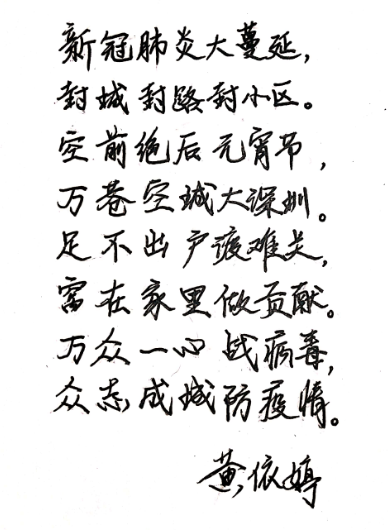 新冠肺炎大蔓延，
封城封路封小区。
空前绝后元宵节，
万巷空城大深圳。
足不出户渡难关，
窝在家里做贡献。
万众一心战病毒，
众志成城防疫情。
黄依婷